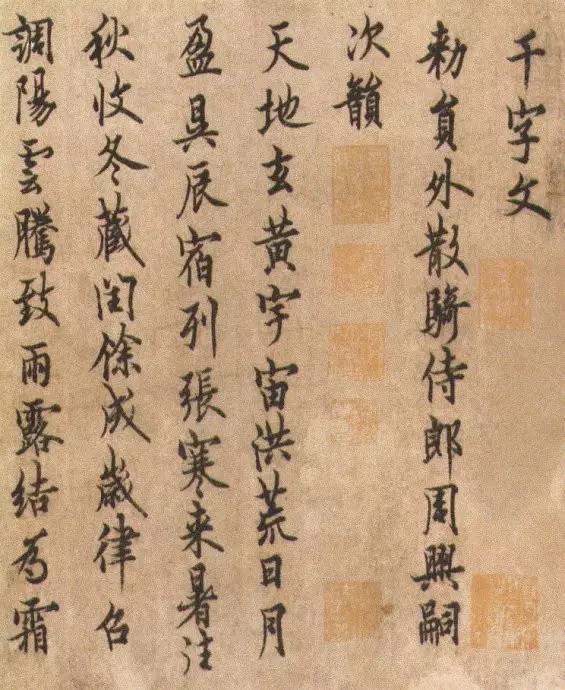 千字文
勅員外散騎侍郎周興嗣
次韻
天地玄黃宇宙洪荒日月
盈昃辰宿列張寒来暑往
秋收冬蔵閏餘成歲律呂
調陽雲騰致雨露結為霜